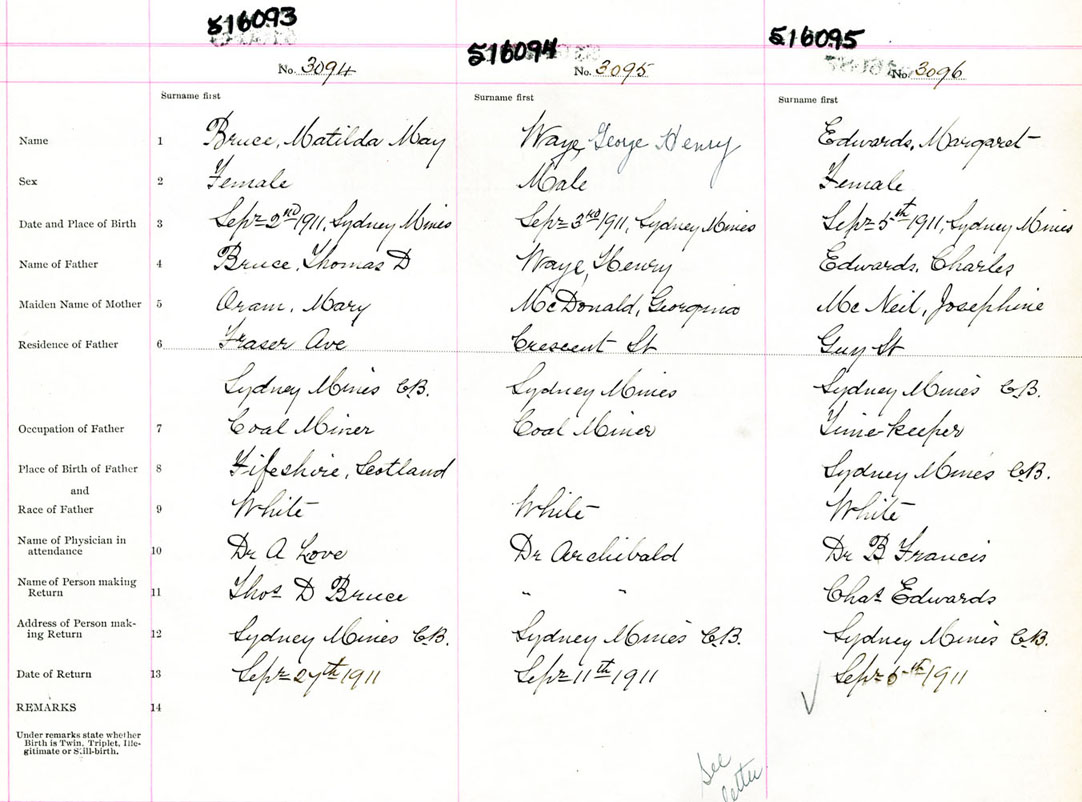 516093
516094
516095
No. 3094
No. 3095
No. 3096
Surname first
Surname first
Surname first
Name 1 Bruce, Matilda May Waye, George Henry Edwards, Margaret
Sex 2 Female Male Female
Date and Place of Birth 3 Sept 2nd 1911, Sydney Mines Sept 3rd 1911, Sydney Mines Sept 5th 1911, Sydney Mines
Name of Father 4 Bruce, Thomas D Waye, Henry Edwards, Charles
Maiden Name of Mother 5 Oram, Mary McDonald, Georgina Mc Neil, Josephine
Residence of Father 6 Fraser Ave Crescent St Guy St
Sydney Mines C.B. Sydney Mines Sydney Mines C.B.
Occupation of Father 7 Coal Miner Coal Miner Time keeper
Place of Birth of Father 8 Fifeshire, Scotland Sydney Mines C.B.
and
Race of Father 9 White White White
Name of Physician in
attendance 10 Dr A Love Dr Archibald Dr B Francis
Name of Person making
Return 11 Thos D Bruce " " Chas Edwards
Address of Person mak-
ing Return 12 Sydney Mines C.B. Sydney Mines C.B. Sydney Mines C.B.
Date of Return 13 Sept 27th 1911 Sept 11th 1911 Sept 5th 1911
REMARKS 14
Under remarks state whether
Birth is Twin, Triplet, Ille-
gitimate or Still-birth.
See
letter